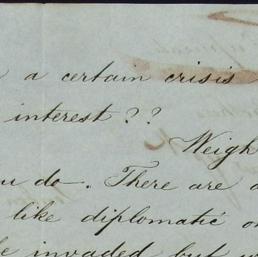 a certain crisis
interest??
Weigh
do—. There are
like diplomatic
invaded but